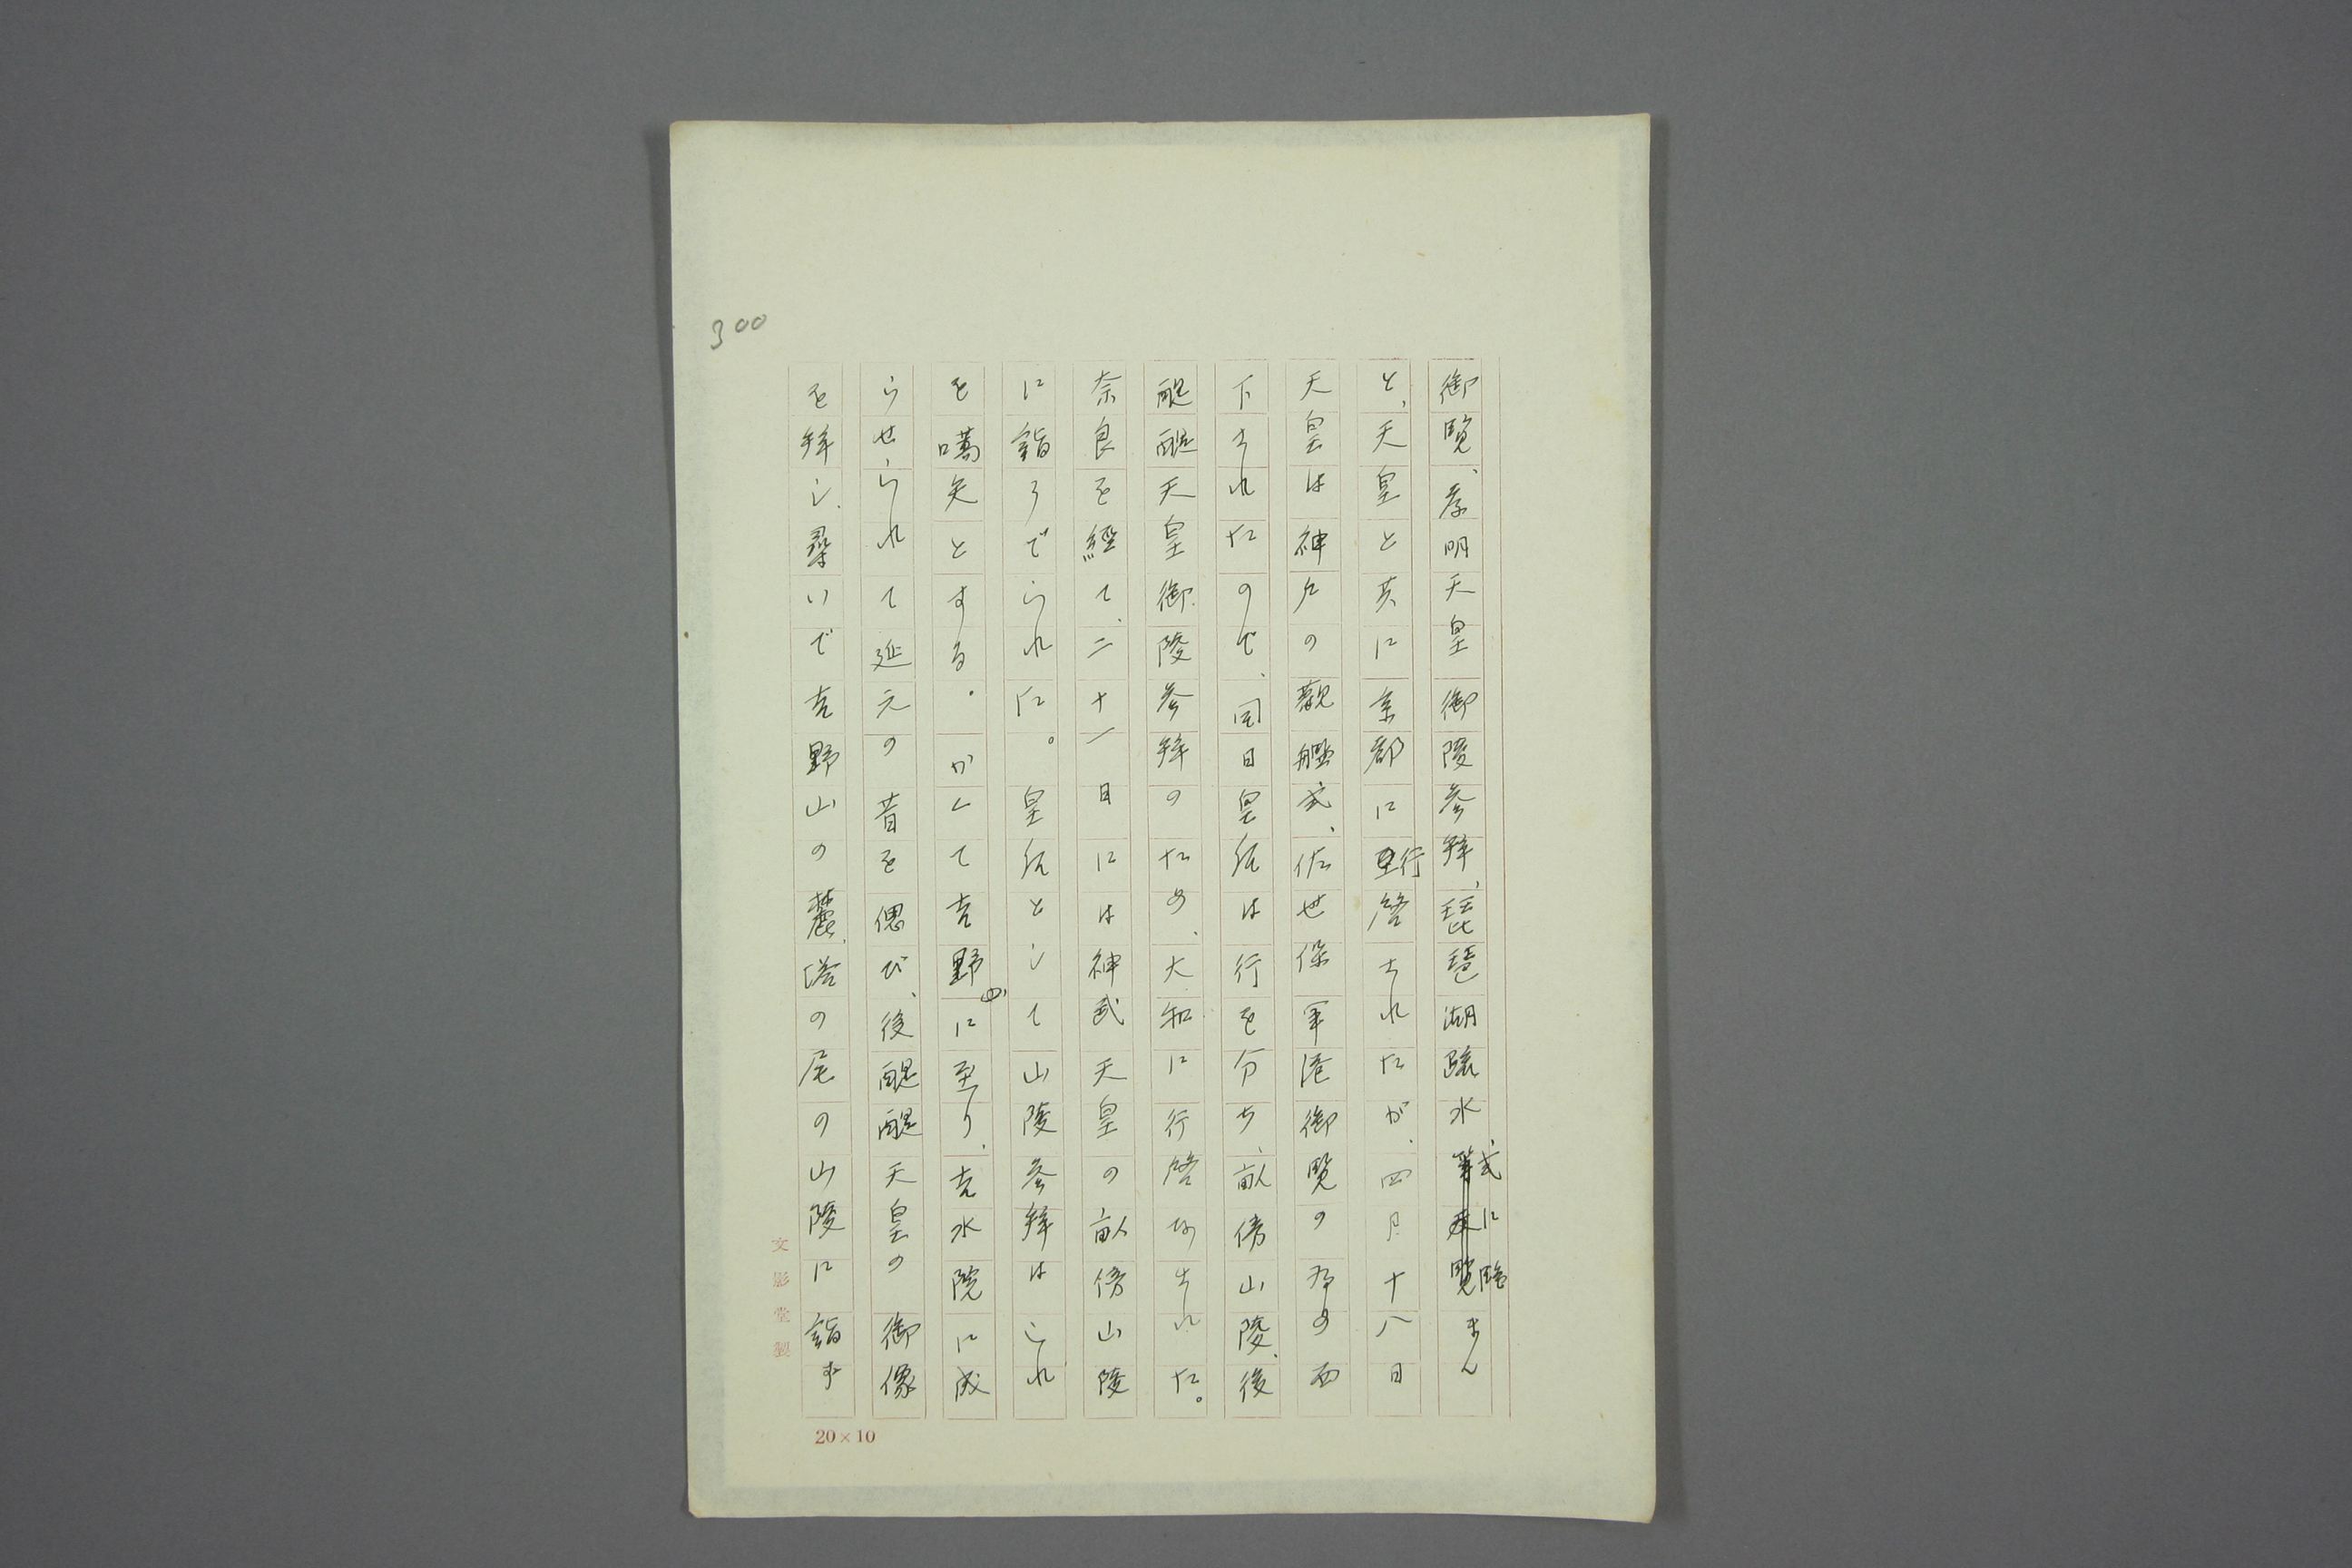 300
御覧、孝明天皇御陵参拝、琵琶湖疏水式に臨まん
と、天皇と共に京都に行啓されたが、四月十八日
天皇は神戸の観艦式、佐世保軍港御覧の為め西
下されたので、同日皇后は行を分ち、畝傍山陵、後
醍醐天皇御陵参拝のため、大和に行啓なされた。
奈良を経て、二十一日には神武天皇の畝傍山陵
に詣うでられた。皇后として山陵参拝はこれ
を嚆矢とする。かくて吉野山に至り、吉水院に成
らせられて延元の昔を偲び、後醍醐天皇の御像
を拝し、尋いで吉野山の麓、塔の尾の山陵に詣す
文影堂製
20×10